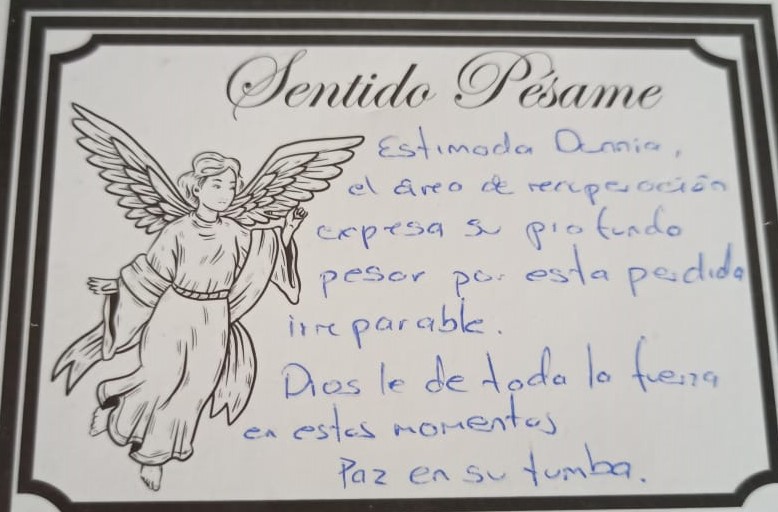 Sentido Pésame
Estimada Dannia,
el área de recuperación
expresa su profundo
pesar por esta perdida
irreparable.
Dios le de toda la fuerza
en estos momentos
Paz en su tumba.